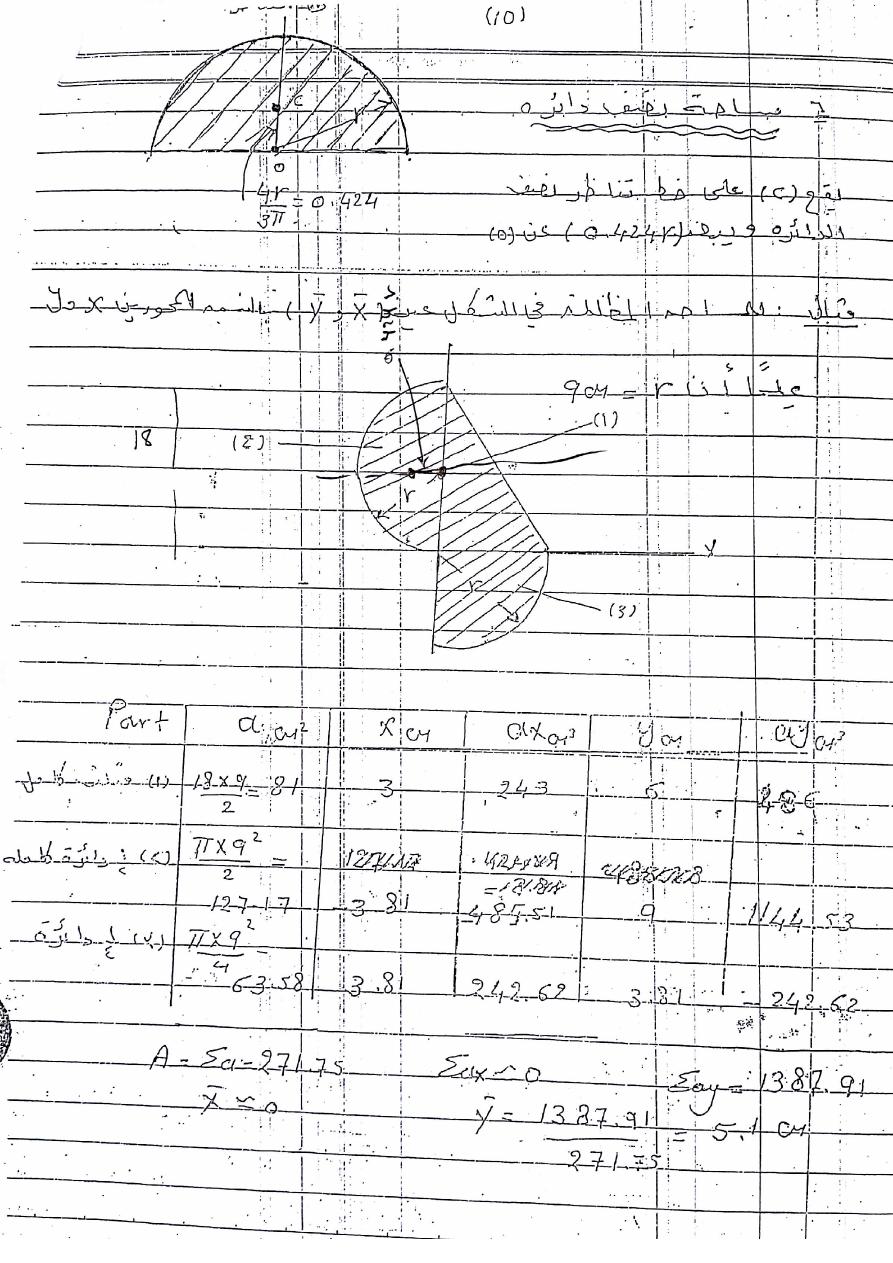 (10)
6 مساحة نصف دائره
C
r
O
4r/3π = 0.424
يقع (C) على خط تناظر نصف
الدائره ويبعد (0.424r) عن (O)
مثال : المساحه المظللة في الشكل عين (X̄ و Ȳ) بالنسبه للمحورين X
علماً أن r = 9cm
(1)
18
(2)
r
y
r
(3)
Part a cm² x cm ax cm³ y cm ay cm³
(1) مثلث كامل 18×9/2 = 81 3 243 6 486
(2) ½ دائرة كامله π×9²/2 =
127.17 -3.81 -485.51 9 1144.53
(3) ¼ دائرة π×9²/4 =
63.58 3.81 242.62 -3.81 -242.62
A = Σa = 271.75 Σax ≃ 0 Σay = 1387.91
X̄ ≃ 0 ȳ = 1387.91/271.75 = 5.1 cm